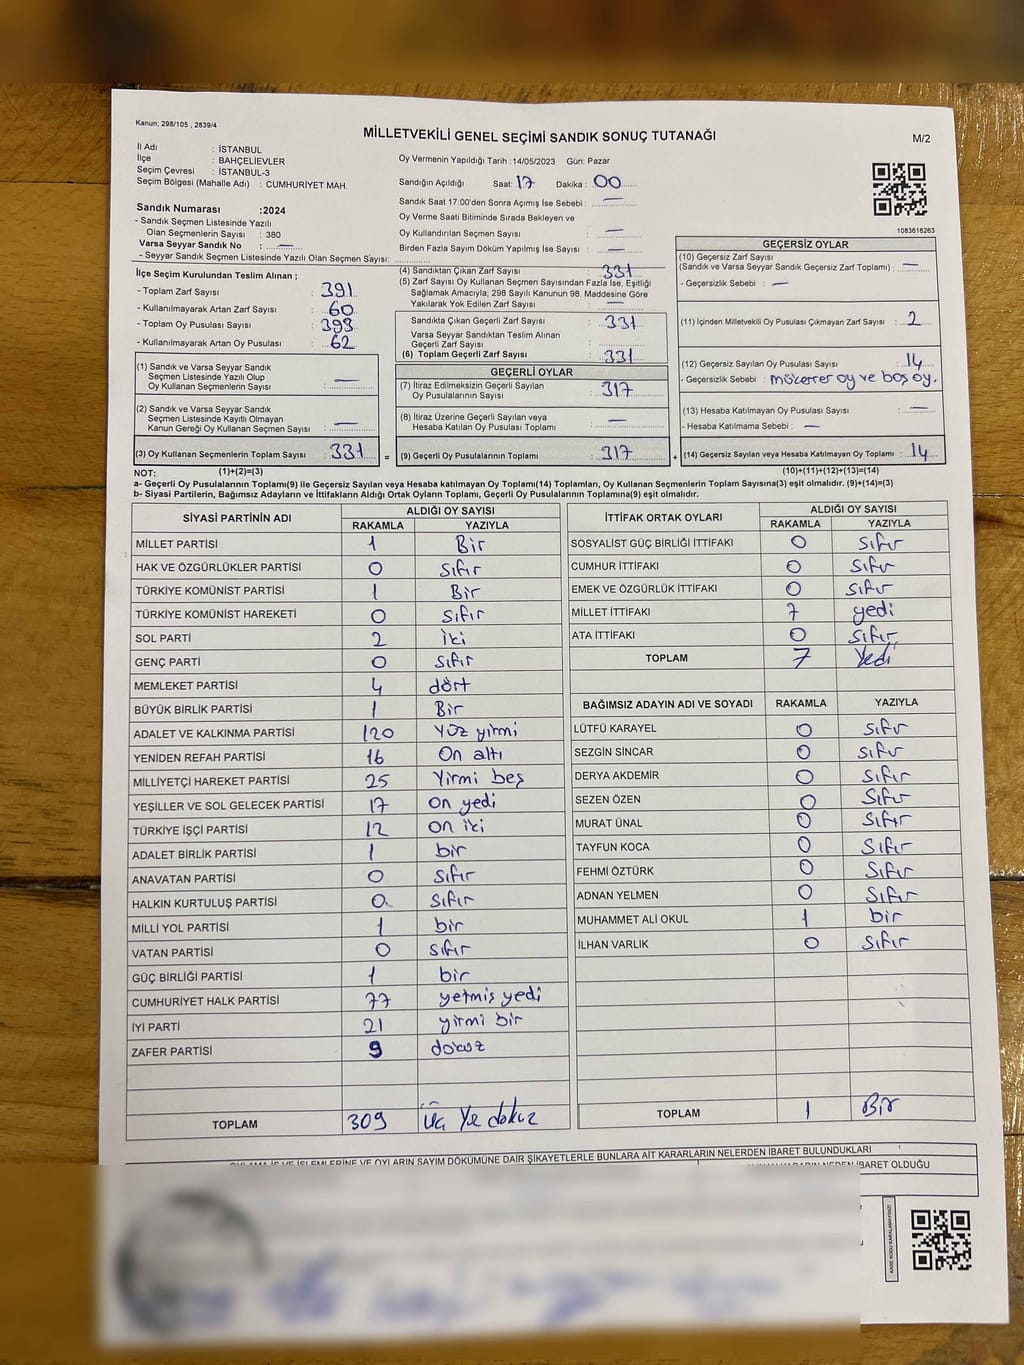 Kanun; 298/105 , 2839/4
MİLLETVEKİLİ GENEL SEÇİMİ SANDIK SONUÇ TUTANAĞI
M/2
İl Adı : İSTANBUL
İlçe : BAHÇELİEVLER
Seçim Çevresi : İSTANBUL-3
Seçim Bölgesi (Mahalle Adı) : CUMHURİYET MAH.
Sandık Numarası :2024
- Sandık Seçmen Listesinde Yazılı
Olan Seçmenlerin Sayısı : 380
Varsa Seyyar Sandık No : —
- Seyyar Sandık Seçmen Listesinde Yazılı Olan Seçmen Sayısı:
Oy Vermenin Yapıldığı Tarih :14/05/2023 Gün: Pazar
Sandığın Açıldığı Saat: 17 Dakika : 00
Sandık Saat 17:00'den Sonra Açımış İse Sebebi : —
Oy Verme Saati Bitiminde Sırada Bekleyen ve
Oy Kullandırılan Seçmen Sayısı : —
Birden Fazla Sayım Döküm Yapılmış İse Sayısı : —
1083616263
İlçe Seçim Kurulundan Teslim Alınan ;
- Toplam Zarf Sayısı : 391
- Kullanılmayarak Artan Zarf Sayısı : 60
- Toplam Oy Pusulası Sayısı : 393
- Kullanılmayarak Artan Oy Pusulası : 62
(1) Sandık ve Varsa Seyyar Sandık
Seçmen Listesinde Yazılı Olup
Oy Kullanan Seçmenlerin Sayısı : —
(2) Sandık ve Varsa Seyyar Sandık
Seçmen Listesinde Kayıtlı Olmayan
Kanun Gereği Oy Kullanan Seçmen Sayısı : —
(3) Oy Kullanan Seçmenlerin Toplam Sayısı : 331
(4) Sandıktan Çıkan Zarf Sayısı : 331
(5) Zarf Sayısı Oy Kullanan Seçmen Sayısından Fazla İse, Eşitliği
Sağlamak Amacıyla; 298 Sayılı Kanunun 98. Maddesine Göre
Yakılarak Yok Edilen Zarf Sayısı : —
Sandıkta Çıkan Geçerli Zarf Sayısı : 331
Varsa Seyyar Sandıktan Teslim Alınan
Geçerli Zarf Sayısı :
(6) Toplam Geçerli Zarf Sayısı : 331
GEÇERLİ OYLAR
(7) İtiraz Edilmeksizin Geçerli Sayılan
Oy Pusulalarının Sayısı : 317
(8) İtiraz Üzerine Geçerli Sayılan veya
Hesaba Katılan Oy Pusulası Toplamı : —
= (9) Geçerli Oy Pusulalarının Toplamı : 317
GEÇERSİZ OYLAR
(10) Geçersiz Zarf Sayısı
(Sandık ve Varsa Seyyar Sandık Geçersiz Zarf Toplamı) : —
- Geçersizlik Sebebi : —
(11) İçinden Milletvekili Oy Pusulası Çıkmayan Zarf Sayısı : 2
(12) Geçersiz Sayılan Oy Pusulası Sayısı : 14
- Geçersizlik Sebebi : mükerrer oy ve boş oy.
(13) Hesaba Katılmayan Oy Pusulası Sayısı : —
- Hesaba Katılmama Sebebi : —
+ (14) Geçersiz Sayılan veya Hesaba Katılmayan Oy Toplamı : 14
NOT: (1)+(2)=(3)
(10)+(11)+(12)+(13)=(14)
a- Geçerli Oy Pusulalarının Toplamı(9) ile Geçersiz Sayılan veya Hesaba katılmayan Oy Toplamı(14) Toplamları, Oy Kullanan Seçmenlerin Toplam Sayısına(3) eşit olmalıdır. (9)+(14)=(3)
b- Siyasi Partilerin, Bağımsız Adayların ve İttifakların Aldığı Ortak Oyların Toplamı, Geçerli Oy Pusulalarının Toplamına(9) eşit olmalıdır.
SİYASİ PARTİNİN ADI ALDIĞI OY SAYISI
RAKAMLA YAZIYLA
MİLLET PARTİSİ 1 Bir
HAK VE ÖZGÜRLÜKLER PARTİSİ 0 sıfır
TÜRKİYE KOMÜNİST PARTİSİ 1 Bir
TÜRKİYE KOMÜNİST HAREKETİ 0 sıfır
SOL PARTİ 2 iki
GENÇ PARTİ 0 sıfır
MEMLEKET PARTİSİ 4 dört
BÜYÜK BİRLİK PARTİSİ 1 Bir
ADALET VE KALKINMA PARTİSİ 120 yüz yirmi
YENİDEN REFAH PARTİSİ 16 on altı
MİLLİYETÇİ HAREKET PARTİSİ 25 Yirmi beş
YEŞİLLER VE SOL GELECEK PARTİSİ 17 on yedi
TÜRKİYE İŞÇİ PARTİSİ 12 on iki
ADALET BİRLİK PARTİSİ 1 bir
ANAVATAN PARTİSİ 0 sıfır
HALKIN KURTULUŞ PARTİSİ 0 sıfır
MİLLİ YOL PARTİSİ 1 bir
VATAN PARTİSİ 0 sıfır
GÜÇ BİRLİĞİ PARTİSİ 1 bir
CUMHURİYET HALK PARTİSİ 77 yetmiş yedi
İYİ PARTİ 21 yirmi bir
ZAFER PARTİSİ 9 dokuz
TOPLAM 309 Üç Yz dokuz
İTTİFAK ORTAK OYLARI ALDIĞI OY SAYISI
RAKAMLA YAZIYLA
SOSYALİST GÜÇ BİRLİĞİ İTTİFAKI 0 sıfır
CUMHUR İTTİFAKI 0 sıfır
EMEK VE ÖZGÜRLÜK İTTİFAKI 0 sıfır
MİLLET İTTİFAKI 7 yedi
ATA İTTİFAKI 0 sıfır
TOPLAM 7 Yedi
BAĞIMSIZ ADAYIN ADI VE SOYADI RAKAMLA YAZIYLA
LÜTFÜ KARAYEL 0 sıfır
SEZGİN SİNCAR 0 sıfır
DERYA AKDEMİR 0 sıfır
SEZEN ÖZEN 0 sıfır
MURAT ÜNAL 0 sıfır
TAYFUN KOCA 0 sıfır
FEHMİ ÖZTÜRK 0 sıfır
ADNAN YELMEN 0 sıfır
MUHAMMET ALİ OKUL 1 bir
İLHAN VARLIK 0 sıfır
TOPLAM 1 Bir
OYLAMA İŞ VE İŞLEMLERİNE VE OYLARIN SAYIM DÖKÜMÜNE DAİR ŞİKAYETLERLE BUNLARA AİT KARARLARIN NELERDEN İBARET BULUNDUKLARI
KARARIN NEDEN İBARET OLDUĞU
KARE KODU KARALAMAYINIZ!